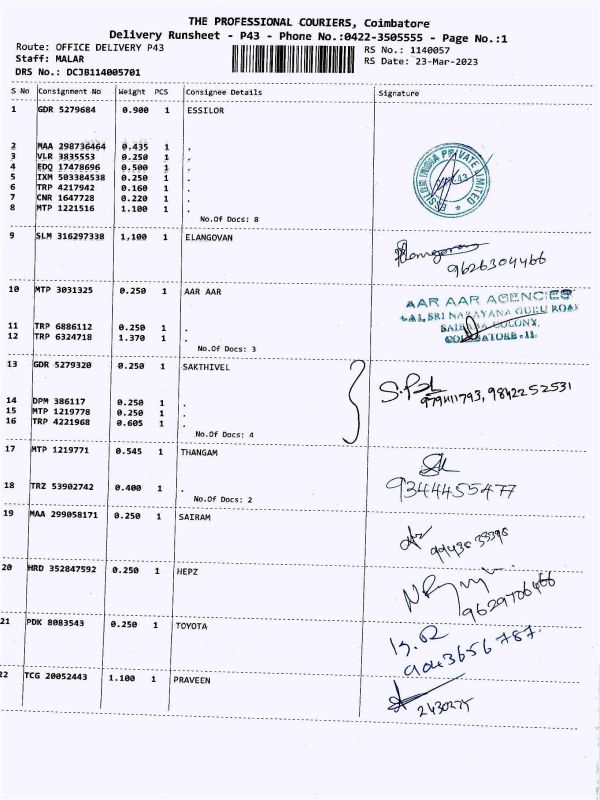 THE PROFESSIONAL COURIERS, Coimbatore
Delivery Runsheet - P43 - Phone No.:0422-3505555 - Page No.:1
Route: OFFICE DELIVERY P43 RS No.: 1140057
Staff: MALAR RS Date: 23-Mar-2023
DRS No.: DCJB114005701
S No Consignment No Weight PCS Consignee Details Signature
1 GDR 5279684 0.900 1 ESSILOR
2 MAA 298736464 0.435 1 .
3 VLR 3835553 0.250 1 .
4 EDQ 17478696 0.500 1 .
5 IXM 503384538 0.250 1 .
6 TRP 4217942 0.160 1 .
7 CNR 1647728 0.220 1 .
8 MTP 1221516 1.100 1 .
No.Of Docs: 8
INDIA PRIVATE LIMITED
9 SLM 316297338 1,100 1 ELANGOVAN
9626304466
10 MTP 3031325 0.250 1 AAR AAR
AAR AAR AGENCIES
SRI NARAYANA GURU ROAD
COLONY,
COIMBATORE-11.
11 TRP 6886112 0.250 1 .
12 TRP 6324718 1.370 1 .
No.Of Docs: 3
13 GDR 5279320 0.250 1 SAKTHIVEL
9842252531
14 DPM 386117 0.250 1 .
15 MTP 1219778 0.250 1 .
16 TRP 4221968 0.605 1 .
No.Of Docs: 4
17 MTP 1219771 0.545 1 THANGAM
9344455477
18 TRZ 53902742 0.400 1 .
No.Of Docs: 2
19 MAA 299058171 0.250 1 SAIRAM
20 HRD 352847592 0.250 1 HEPZ
9629706466
21 PDK 8083543 0.250 1 TOYOTA
9043656787.
22 TCG 20052443 1.100 1 PRAVEEN